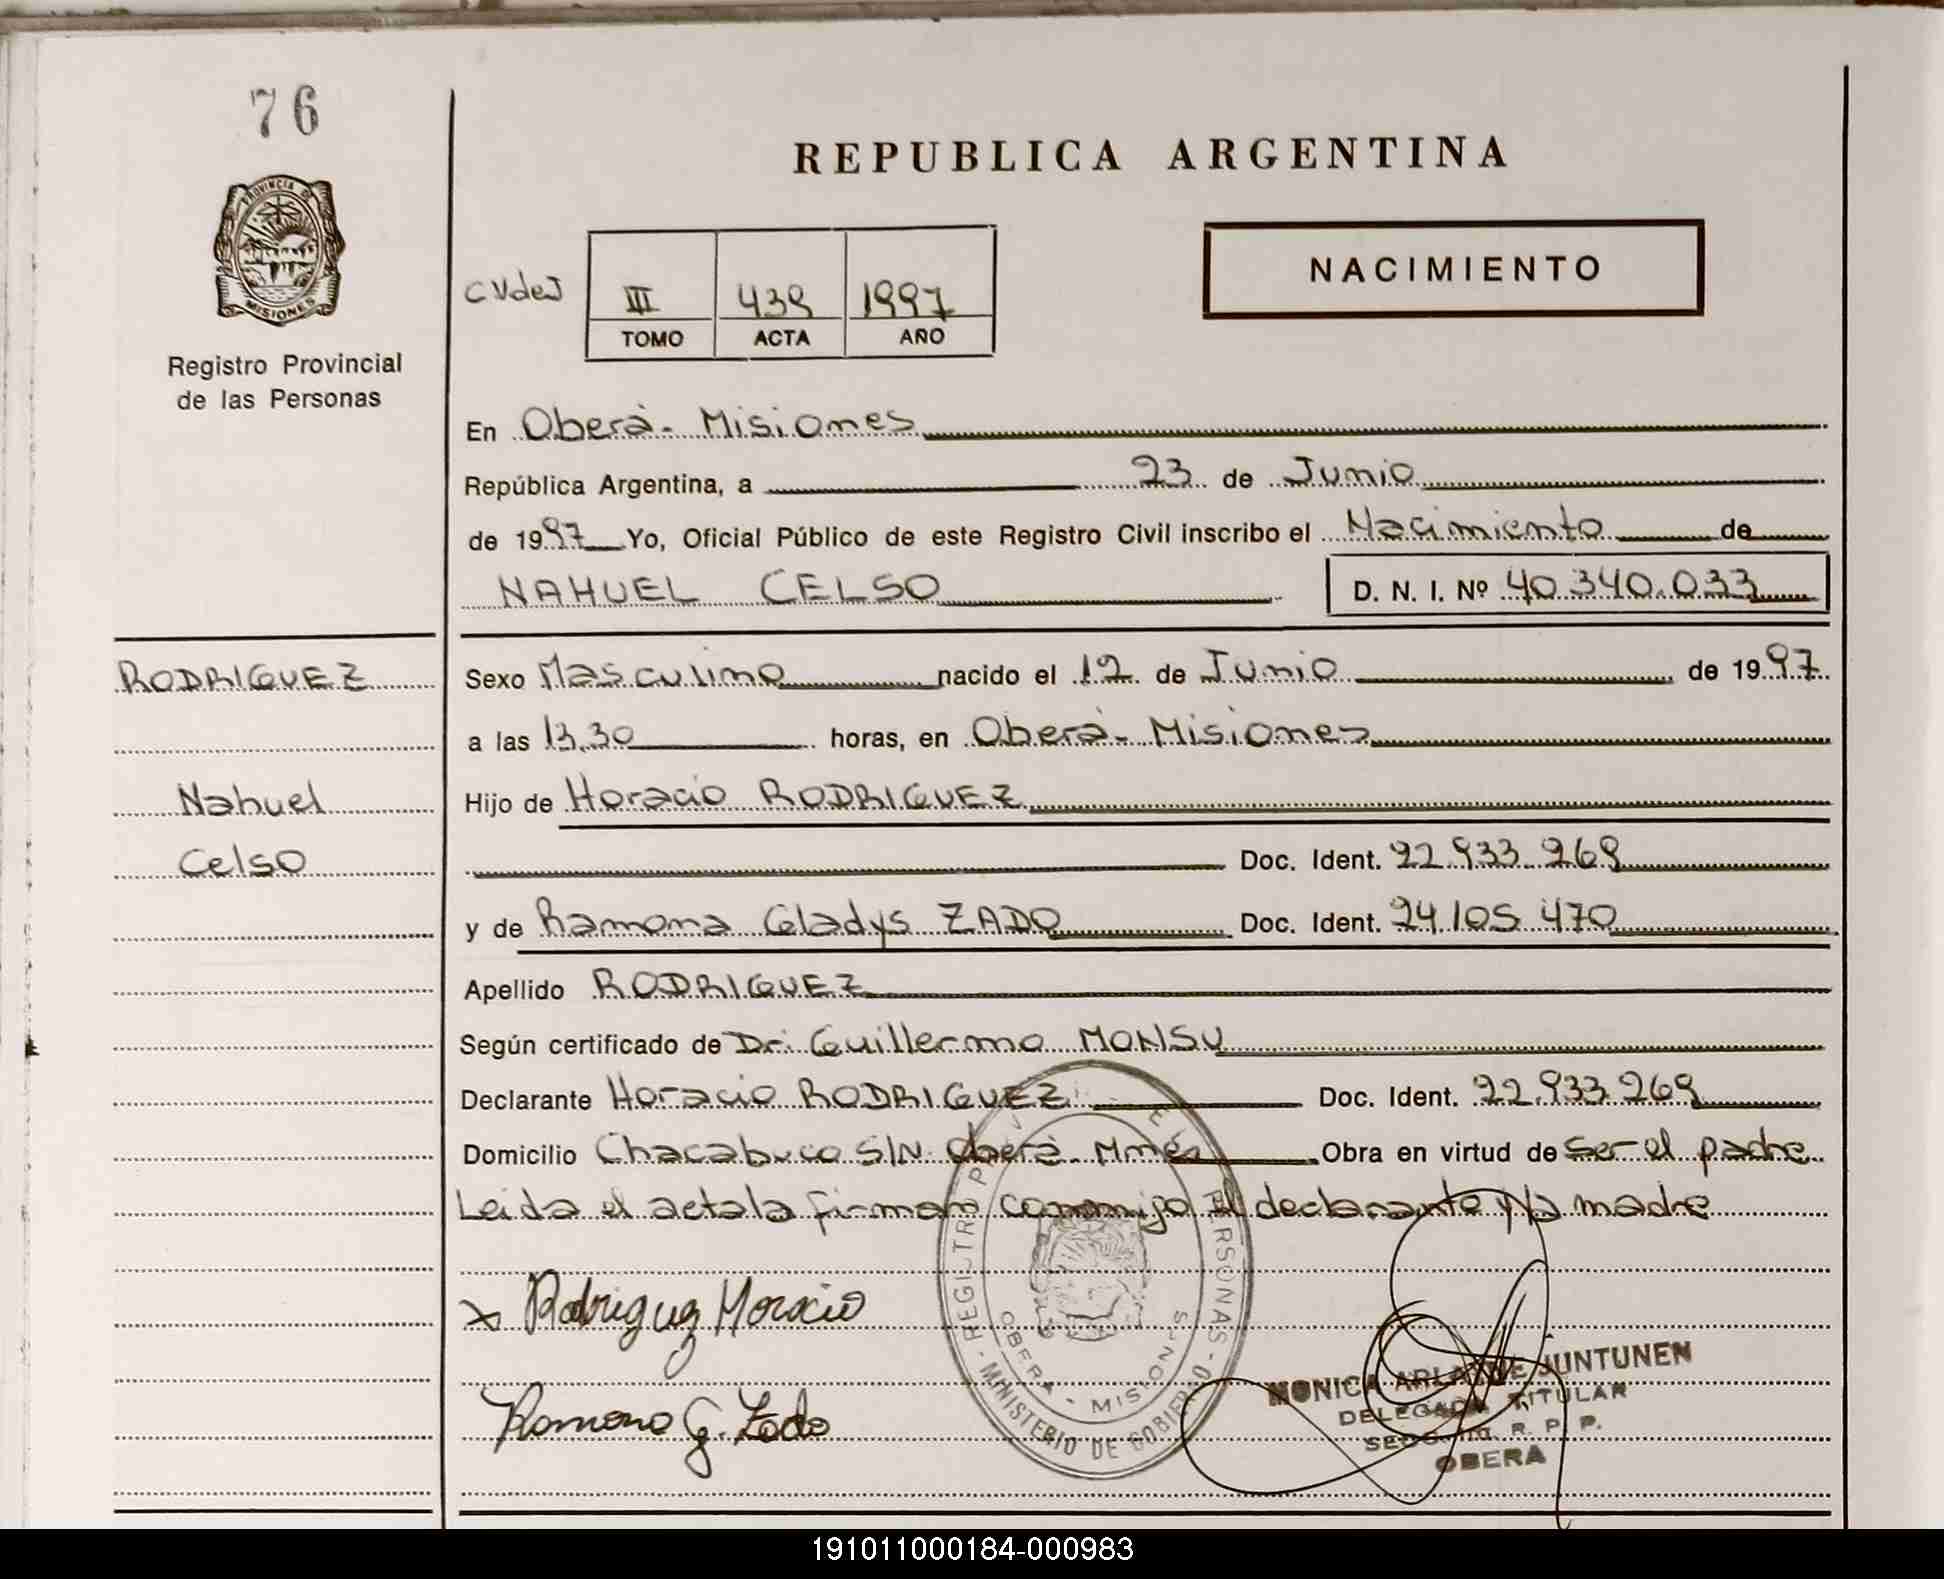 76
REPUBLICA ARGENTINA
PROVINCIA DE
MISIONES
Registro Provincial
de las Personas
NACIMIENTO
III 439 1997
TOMO ACTA AÑO
En Oberá - Misiones
República Argentina, a 23 de Junio
de 1997 Yo, Oficial Público de este Registro Civil inscribo el Nacimiento de
NAHUEL CELSO D. N. I. Nº 40.340.033
RODRIGUEZ
Nahuel
Celso
Sexo Masculino nacido el 12 de Junio de 1997
a las 13.30 horas, en Oberá - Misiones
Hijo de Horacio RODRIGUEZ
Doc. Ident. 22.933.269
y de Ramona Gladys ZADO Doc. Ident. 24.105.470
Apellido RODRIGUEZ
Según certificado de Dr. Guillermo MONSU
Declarante Horacio RODRIGUEZ Doc. Ident. 22.933.269
Domicilio Chacabuco S/N Oberá - Mnes Obra en virtud de ser el padre
Leida el acta la firman conmigo el declarante y la madre
x Rodriguez Horacio
Ramona G. Zado
MINISTERIO DE GOBIERNO
OBERA - MISIONES
MONICA JUNTUNEN
DELEGADA TITULAR
R. P. P.
OBERA
191011000184-000983